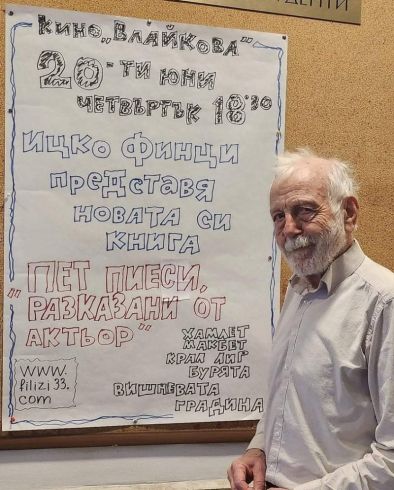 ДЕНТИ
КИНО „ВЛАЙКОВА"
20-ТИ ЮНИ
ЧЕТВЪРТЪК 18:30
ИЦКО ФИНЦИ
ПРЕДСТАВЯ
НОВАТА СИ
КНИГА
"ПЕТ ПИЕСИ,
РАЗКАЗАНИ ОТ
АКТЬОР"
ХАМЛЕТ
МАКБЕТ
КРАЛ ЛИР
БУРЯТА
ВИШНЕВАТА
ГРАДИНА
www.
filizi33.
com